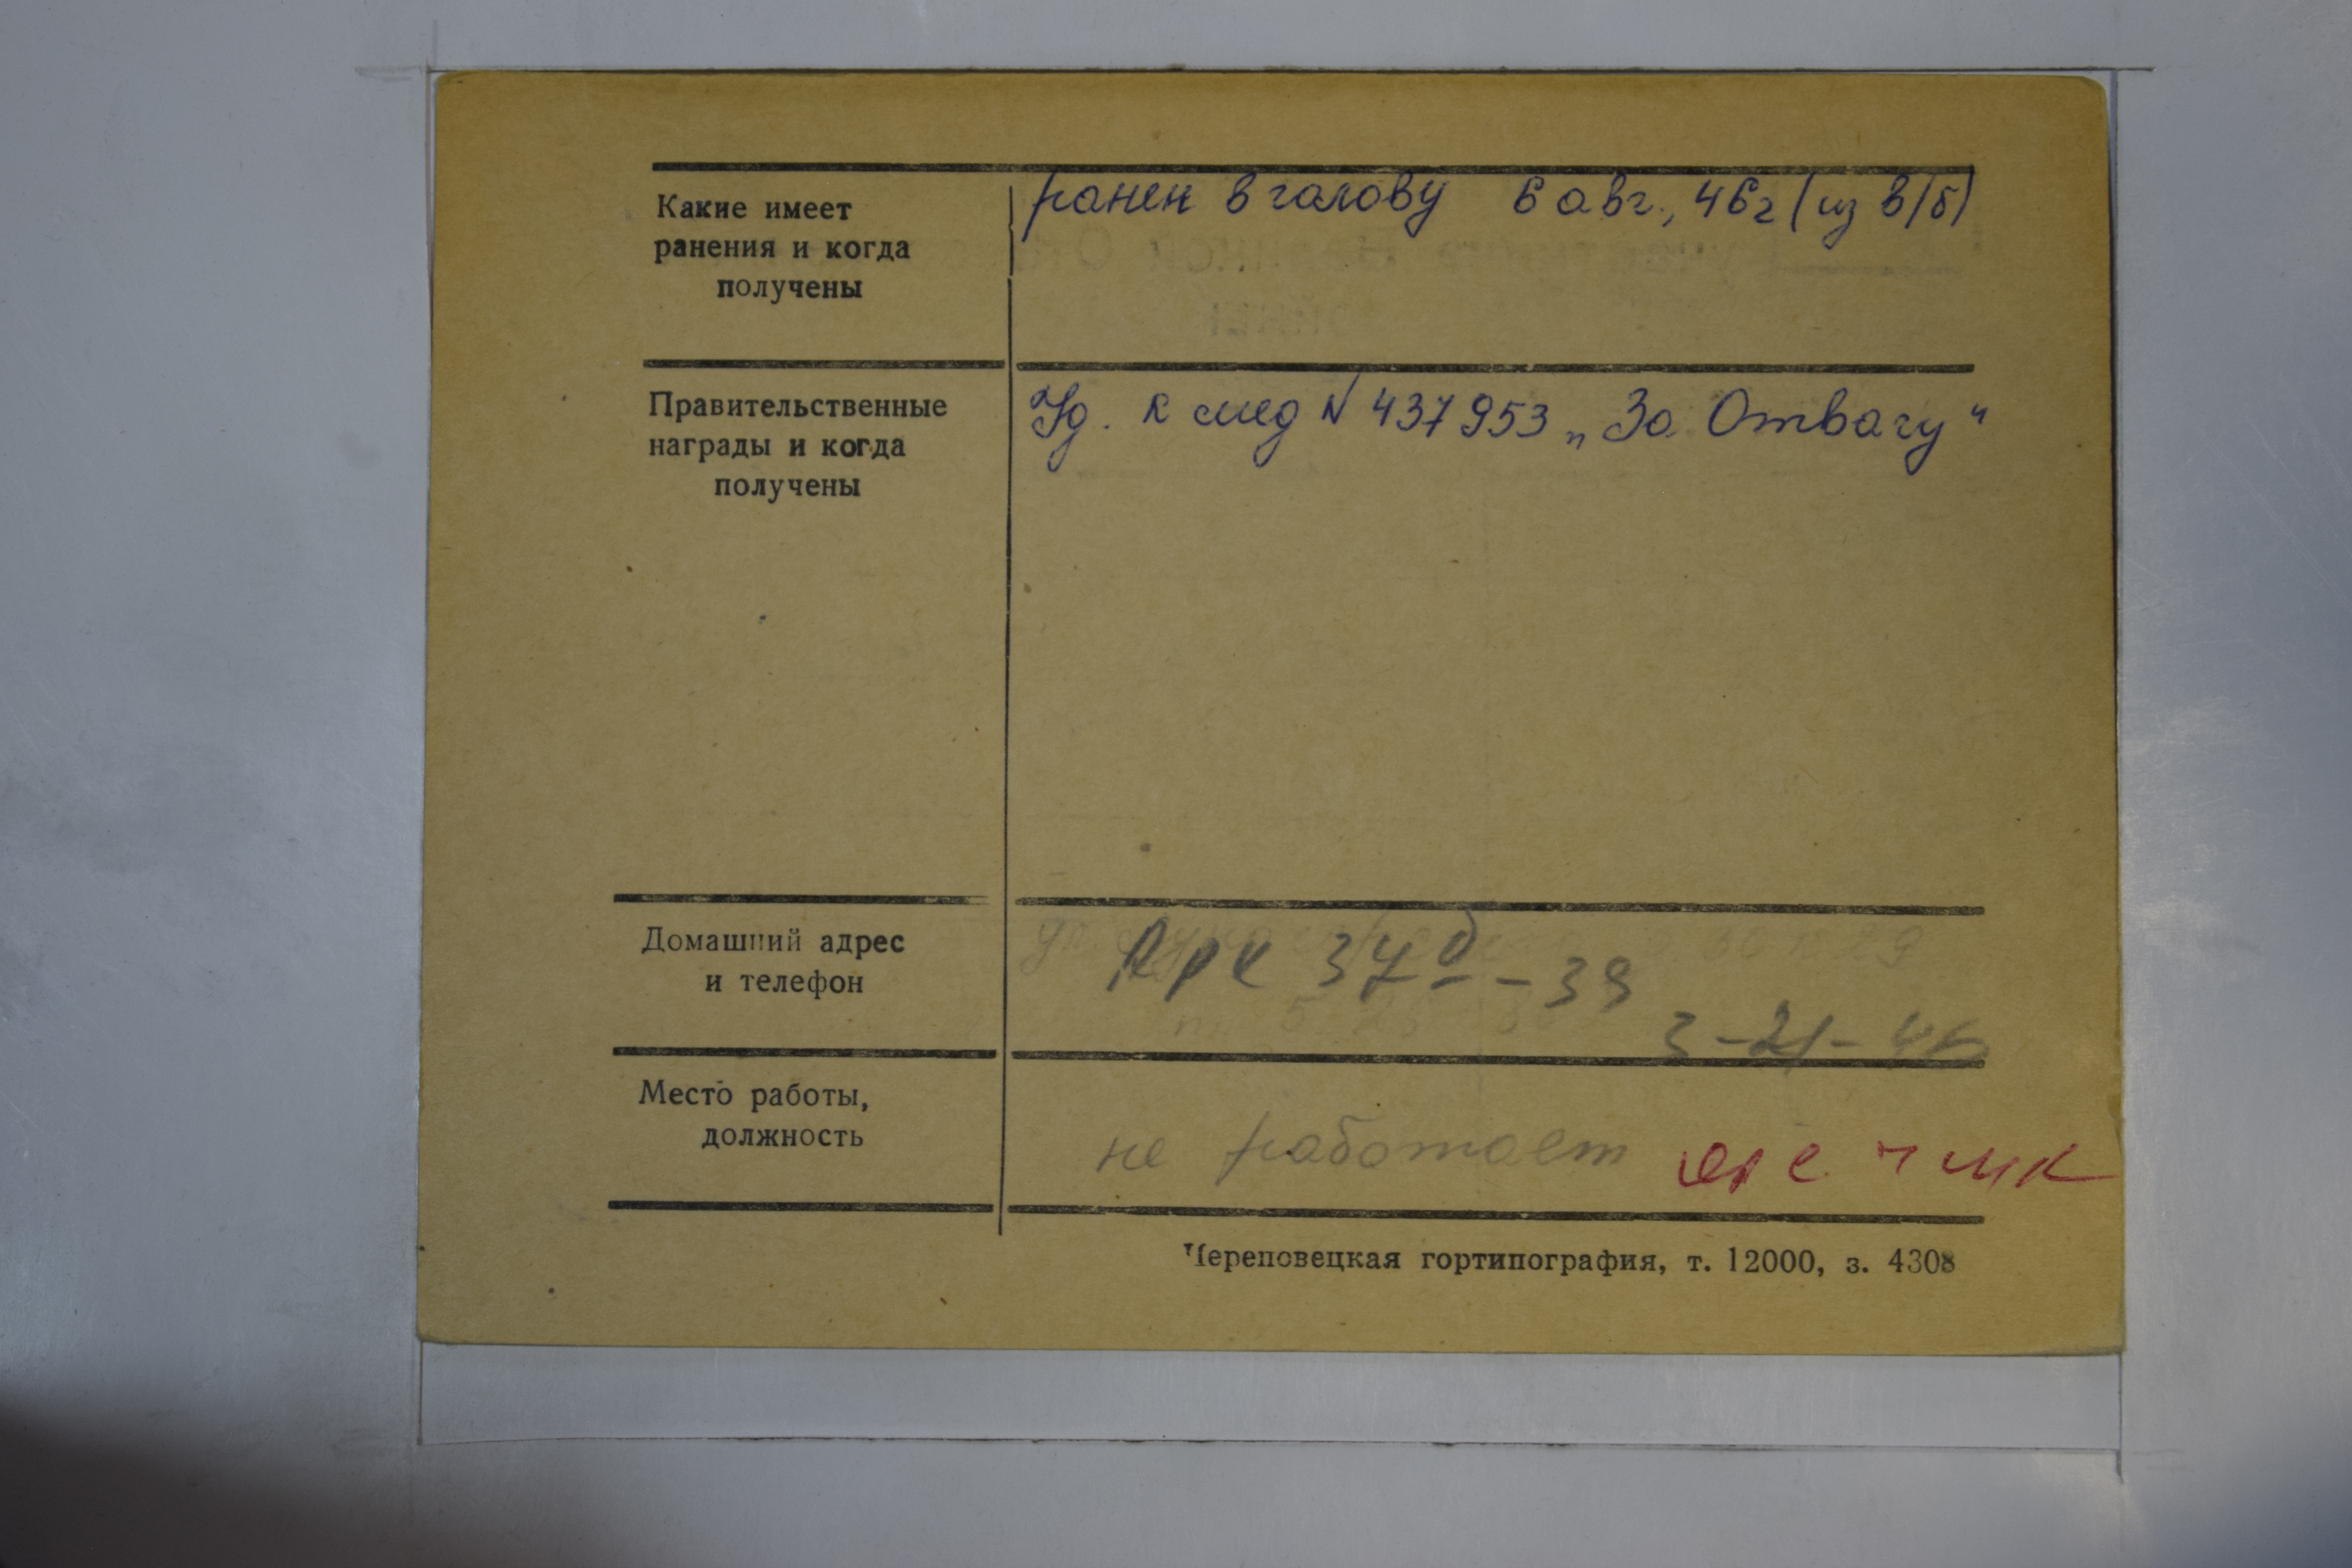 Какие имеет
ранения и когда
получены
ранен в голову 6 авг., 46г (из в/б)
Правительственные
награды и когда
получены
Уд. к мед № 437953 „За Отвагу"
Домашний адрес
и телефон
37б - 39
3-21-46
Место работы,
должность
не работает
Череповецкая гортипография, т. 12000, з. 4308